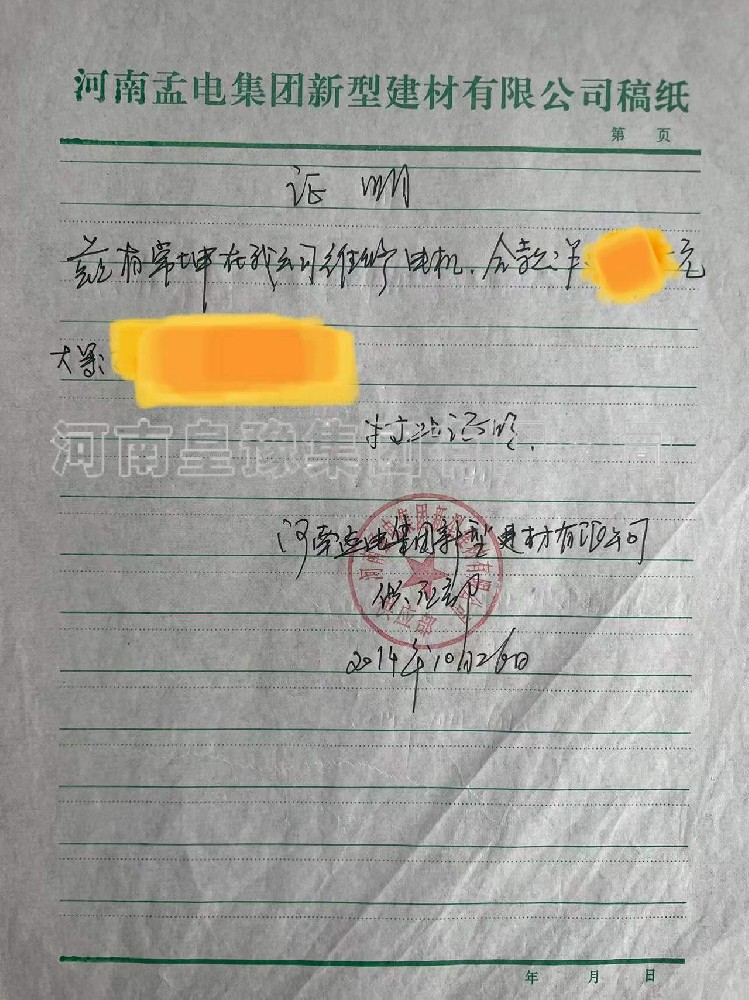 河南孟电集团新型建材有限公司稿纸
第 页
证明
兹有常坤在我公司维修电机.合款:洋 元
大写:
特此证明.
河南皇豫集团 司
河南孟电集团新型建材有限公司
供应部
2014年10月26日
年 月 日